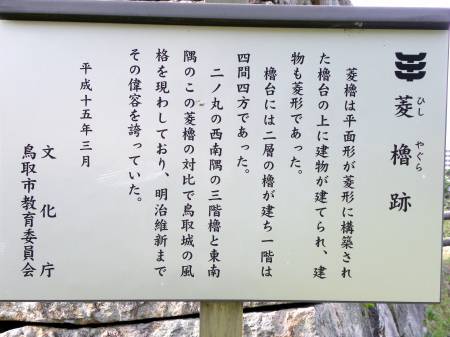 菱櫓跡
ひし やぐら
菱櫓は平面形が菱形に構築され
た櫓台の上に建物が建てられ、建
物も菱形であった。
櫓台には二層の櫓が建ち一階は
四間四方であった。
二ノ丸の西南隅の三階櫓と東南
隅のこの菱櫓の対比で鳥取城の風
格を現わしており、明治維新まで
その偉容を誇っていた。
平成十五年三月
文化庁
鳥取市教育委員会